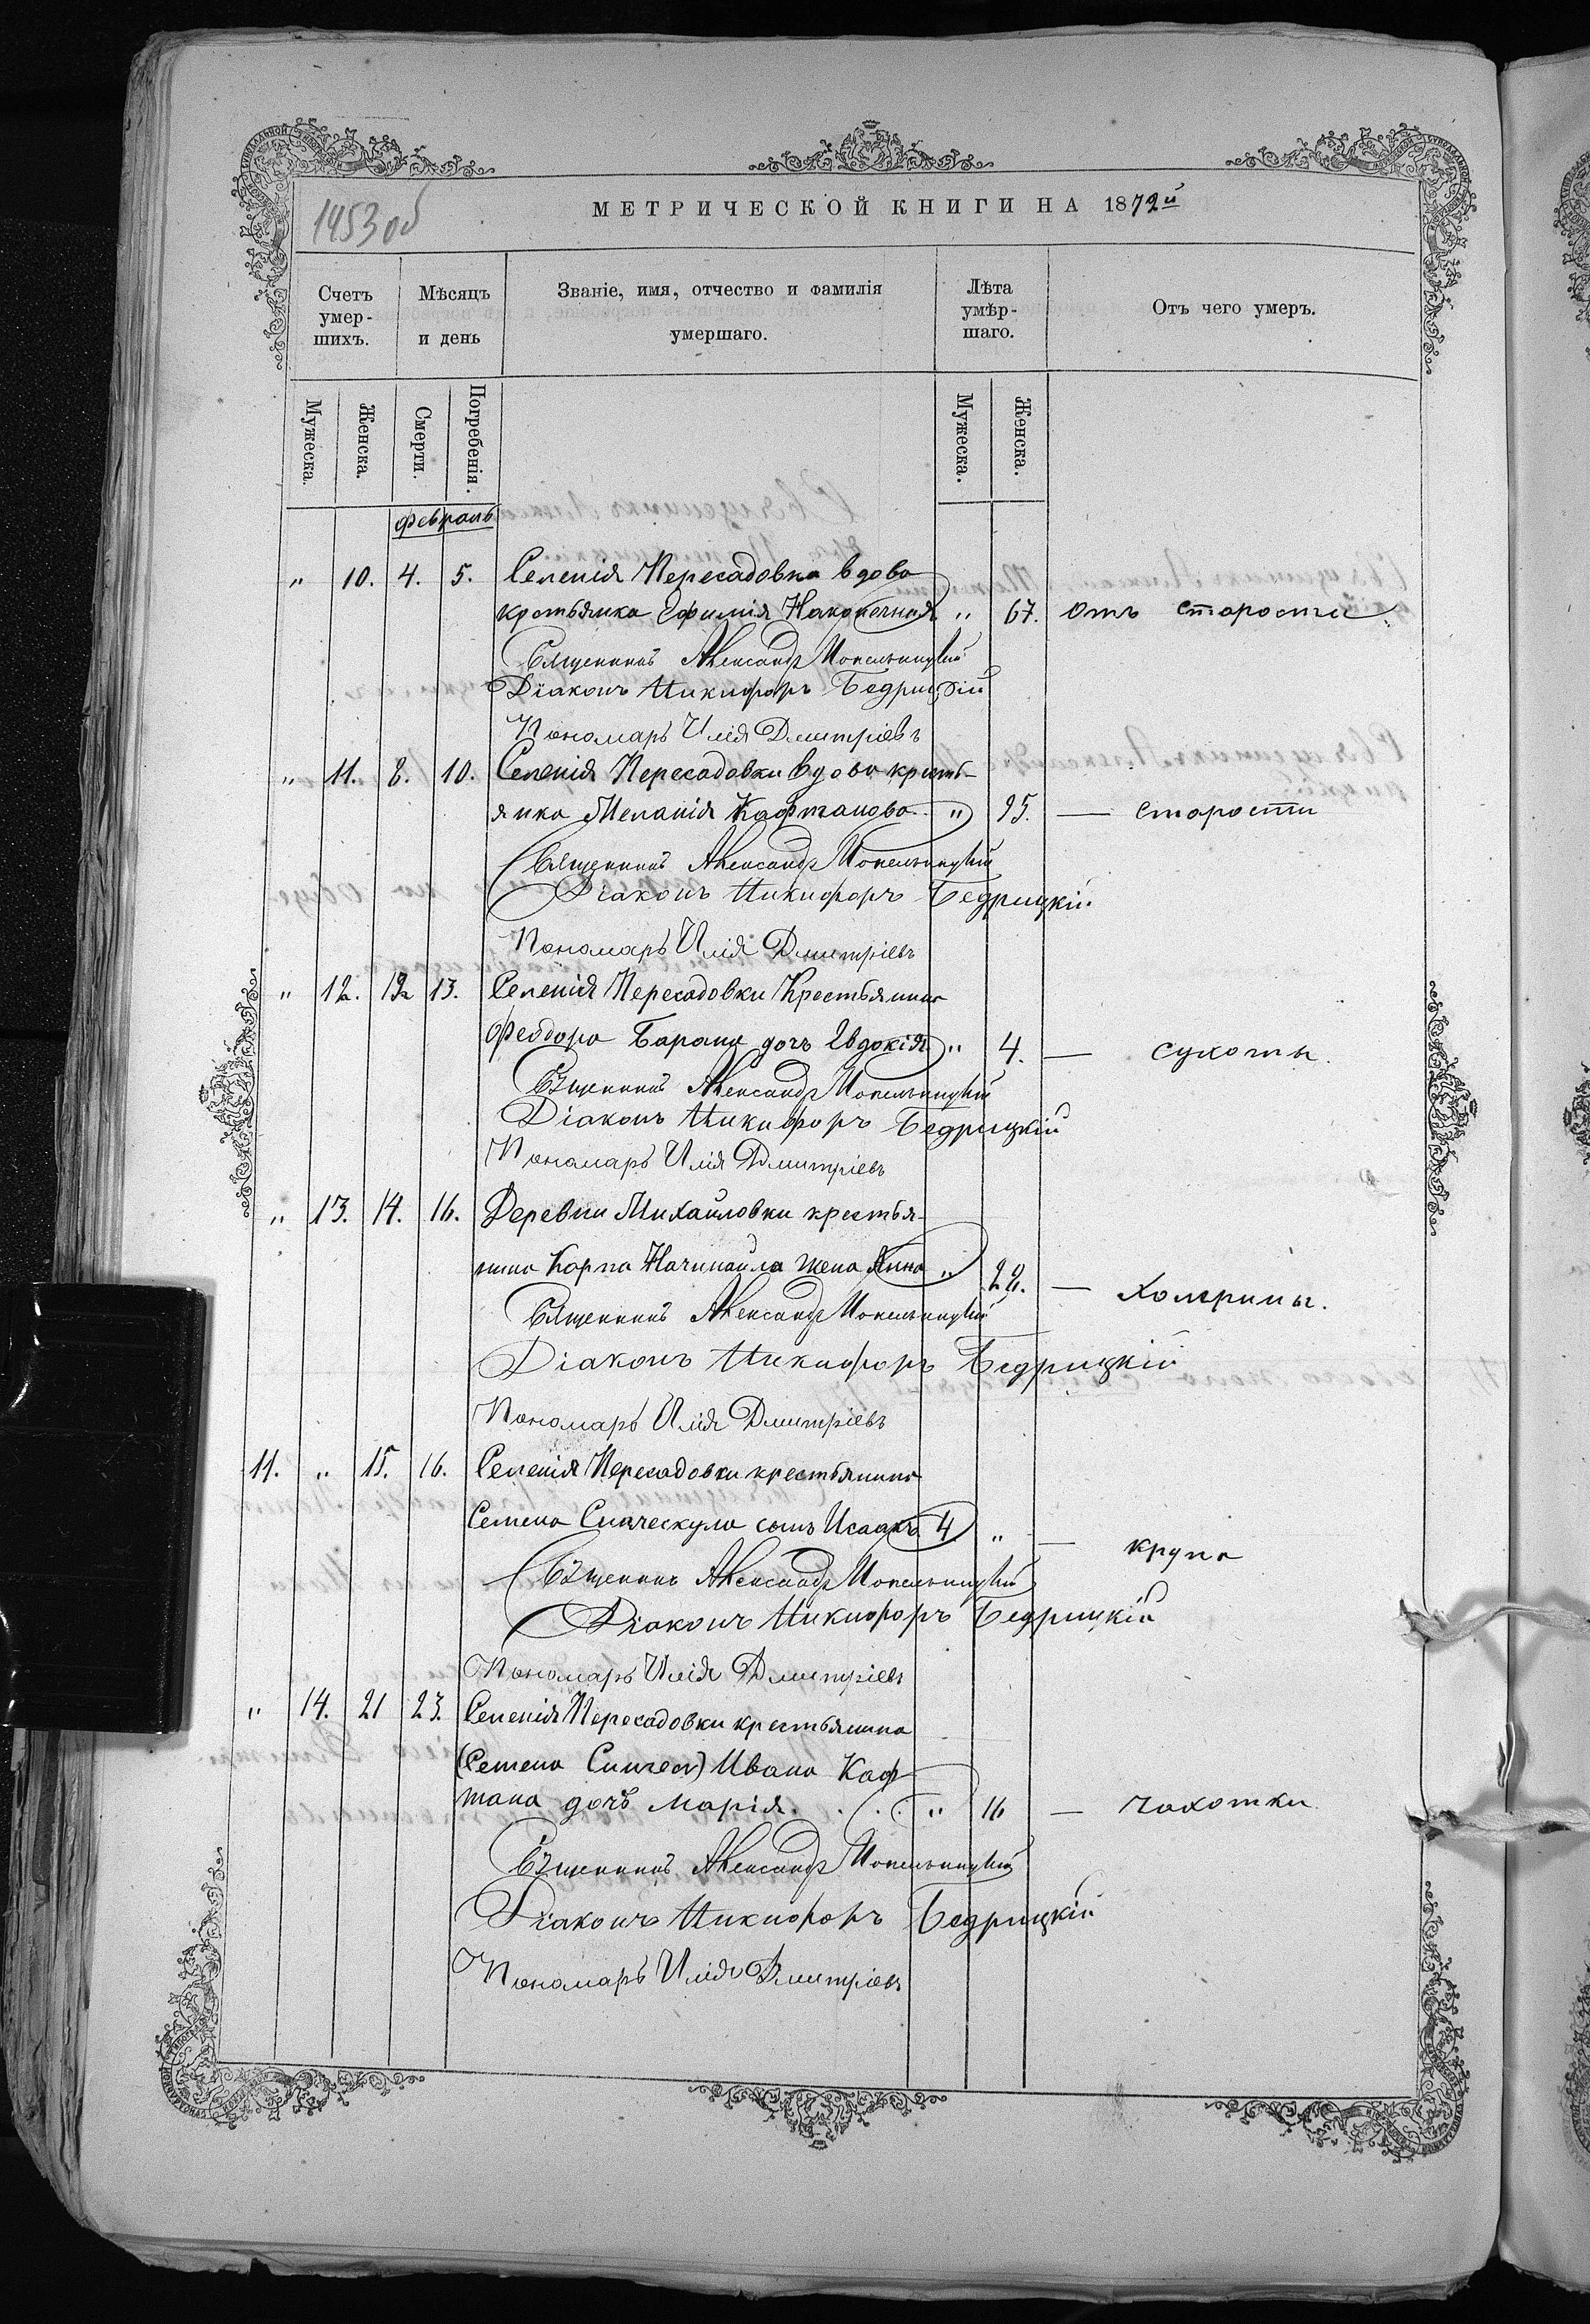 1453 об
МЕТРИЧЕСКОЙ КНИГИ НА 1872й
Счетъ умер-шихъ.
Мѣсяцъ и день
Званіе, имя, отчество и фамилія умершаго.
Лѣта умѣр-шаго.
Отъ чего умеръ.
Мужеска.
Женска.
Смерти.
Погребенія.
Мужеска.
Женска.
Февраль
" 10. 4. 5. Селенія Пересадовка вдова
крестьянка Ефимія Наконечная " 67. Отъ старости.
Священникъ Александр
Діаконъ Никифоръ Бедрицкій
Пономарь Илія Дмитріевъ
" 11. 8. 10. Селенія Пересадовки вдова кресть-
янка Меланія Кафтанова " 95. — старости
Священникъ Александр
Діаконъ Никифоръ Бедрицкій
Пономарь Илія Дмитріевъ
" 12. 12 13. Селенія Пересадовки Крестьянина
Феодора Барана дочь Евдокія " 4. — сухоты.
Священникъ Александр
Діаконъ Никифоръ Бедрицкій
Пономарь Илія Дмитріевъ
" 13. 14. 16. Деревни Михайловки крестья-
нина Карпа жена Анна " 22. — Холерины.
Священникъ Александр
Діаконъ Никифоръ Бедрицкій
Пономарь Илія Дмитріевъ
11. " 15. 16. Селенія Пересадовки крестьянина
Семена сынъ Исаакъ 4 " — крупа
Священникъ Александр
Діаконъ Никифоръ Бедрицкій
Пономарь Илія Дмитріевъ
" 14. 21 23. Селенія Пересадовки крестьянина
(Семена Ивана Каф-
тана дочь Марія. . . . " 16 — чахотки
Священникъ Александр
Діаконъ Никифоръ Бедрицкій
Пономарь Илія Дмитріевъ